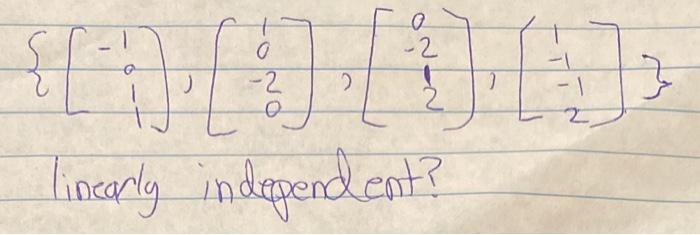 { [ -1 0 1 1 ] , [ 1 0 -2 0 ] , [ 0 -2 1 2 ] , [ 1 -1 -1 2 ] }
linearly independent?